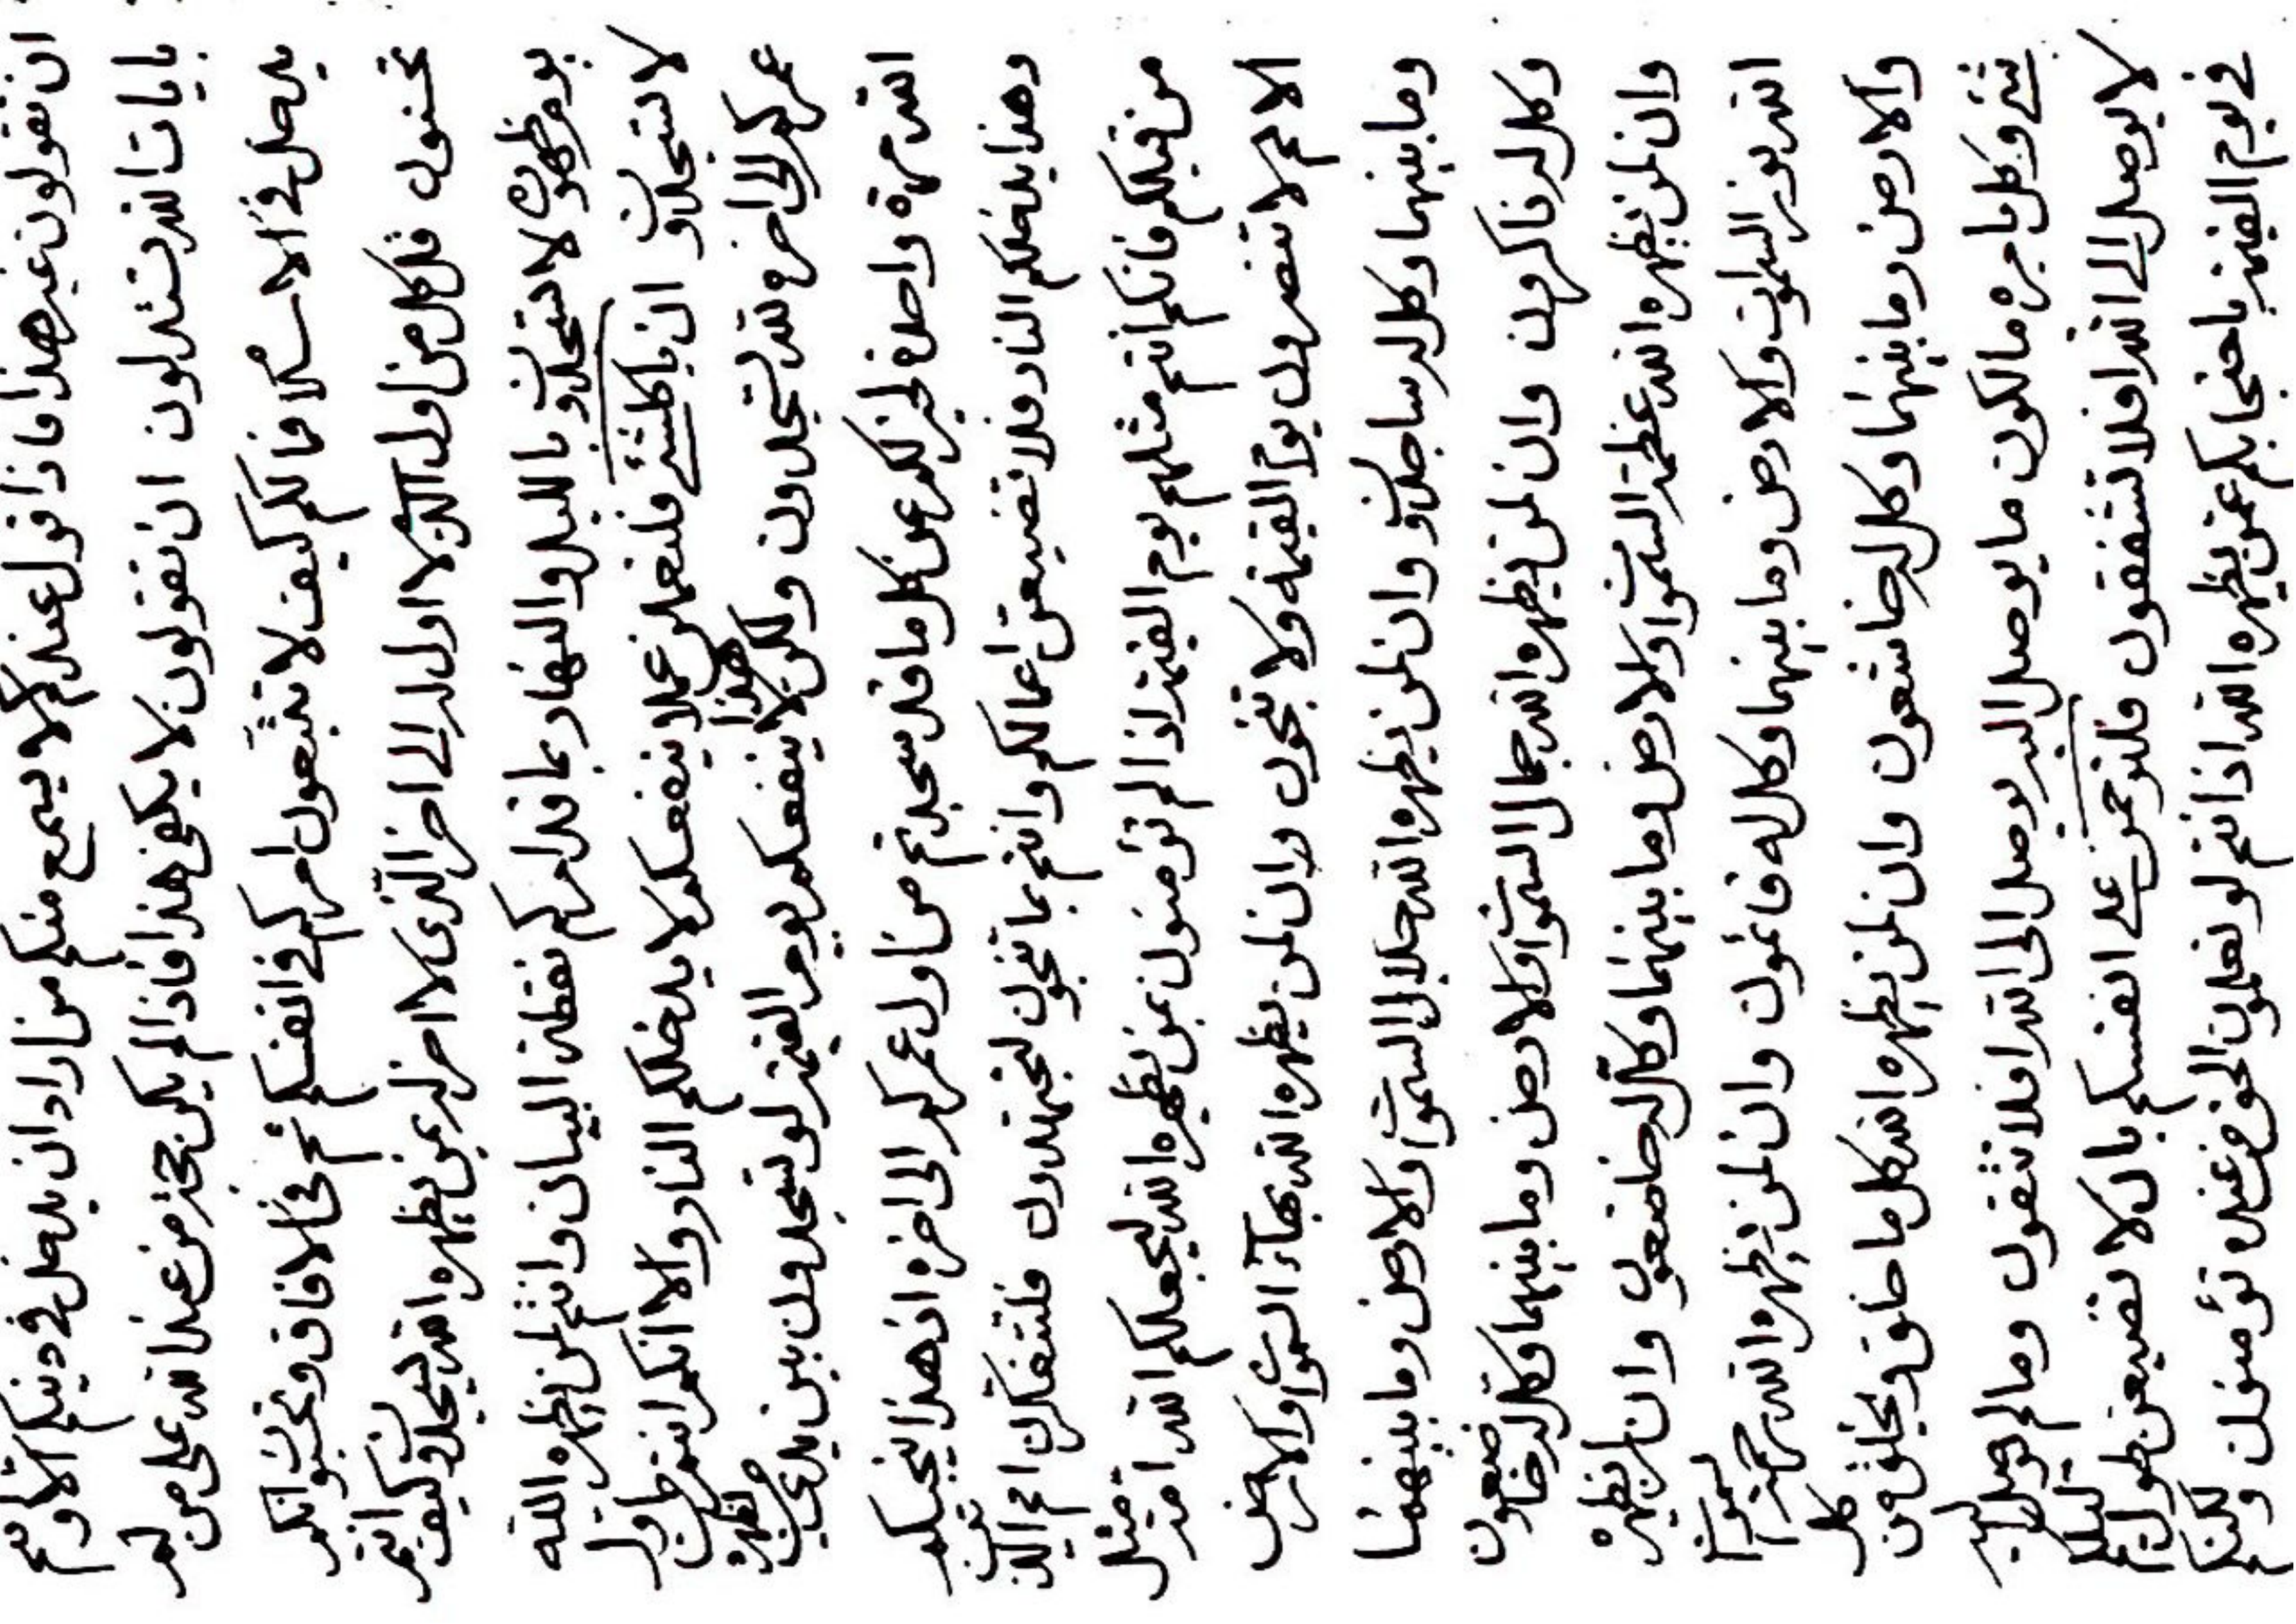 ان تقولون غير هذا فاذا اقول عندكم لا يسمع منكم من اراد ان يدخل في دينكم الا وانتم
بايات الله تستدلون ان تقولون لا يكفى هذا فاذا لم يكن حجة من عند الله على من لم
يدخل في الاسلام فما لكم كيف لا تتبعون امركم في انفسكم ثم في الافاق وتحسبوا انكم
تحسنون قل كل من اول الذي لا اول له الى اخر الذي لا اخر له بمن يظهره الله ليسجدن كيف انتم
يوم ظهوره لا تسجدون بالليل والنهار بما قد امركم نقطة البيان وانتم لمن يظهره الله
لا تسجدون ان يا كلشئ فلتعملن عملا ينفعكم لا يدخلكم النار والا انكم انتم من اول
عمركم الى اخره لله تسجدون ولكن لا ينفعكم هذا يوم القيمة لو تسجدون بين يدي من يظهره
الله مرة واحدة لخير لكم عن كل ما قد سجدتم من اول عمركم الى اخره اذ هذا ينجيكم
وهذا يدخلكم النار فلا تضيعن اعمالكم وانتم بما تحبون لتجتهدون فلتتفكرن امم الذين
من قبلكم فانكم انتم مثلهم يوم القيمة اذا لم تؤمنون بمن يظهره الله ليجعلكم الله امة مثل
الامم لا تنصرون يوم القيمة ولا تنجون وان لمن يظهره الله بهاء السموات والارض
وما بينهما وكل له ساجدون وان لمن يظهره الله جلال السموات والارض وما بينهما
وكل له ذاكرون وان لمن يظهره الله جمال السموات والارض وما بينهما وكل له خاضعون
وان لمن يظهره الله عظمة السموات والارض وما بينهما وكل له خاضعون وان لمن يظهره
الله نور السموات والارض وما بينهما وكل له قائمون وان لمن يظهره الله رحمة السموات
والارض وما بينهما وكل له خاشعون وان لمن يظهره الله كل ما خلق ويخلق من كل
شئ وكل بامره ما لكون ما يوصل اليه يوصل الى الله افلا تتقون وما لم يوصل اليه
لا يوصل الى الله افلا تشفقون فلترحمن على انفسكم بان لا تضيعن طول ليلكم
في يوم القيمة باحتجابكم عمن يظهره الله اذ انتم لو تعلمون الحق من عنده تؤمنون ولكنكم